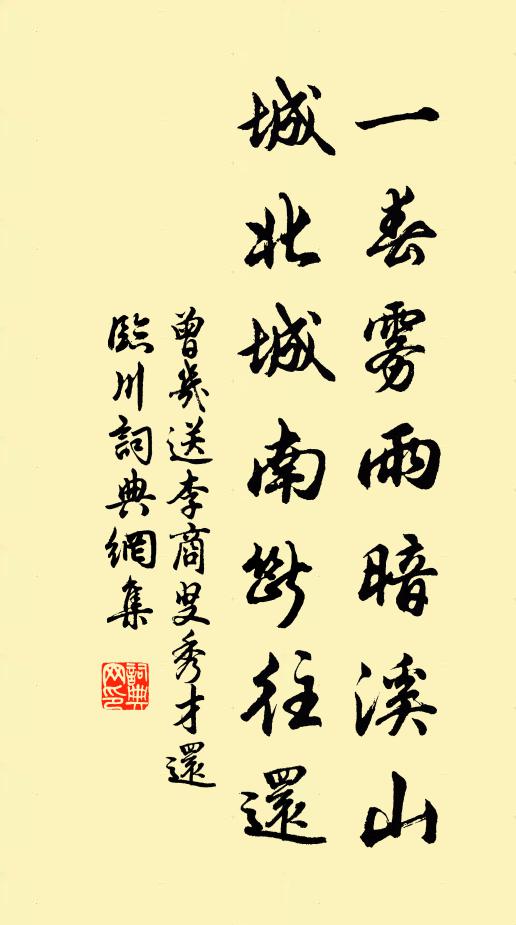 一春雾雨暗溪山
城北城南断往還
曾幾送李商叟秀才還
臨川詞典網集
詞典网印